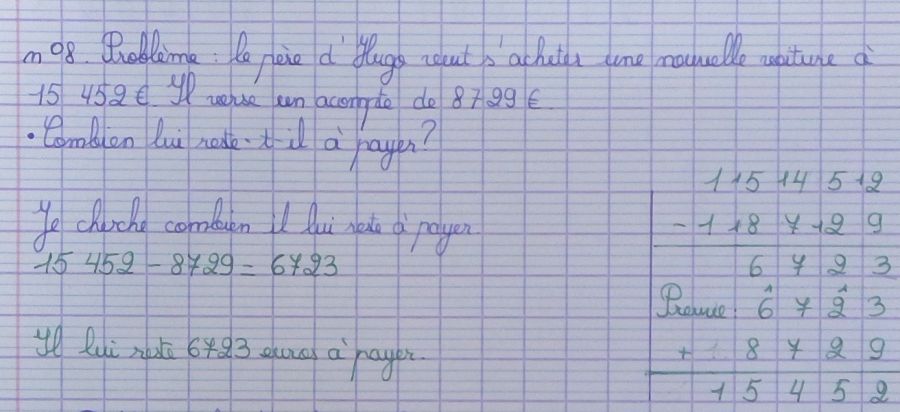 n°98. Problème : Le père d'Hugo veut s'acheter une nouvelle voiture à
15 452 €. Il verse un acompte de 8729 €.
• Combien lui reste-t-il à payer ?
Je cherche combien il lui reste à payer.
15 452 - 8729 = 6723
Il lui reste 6723 euros à payer.
1 15 14 5 12
- 1 18 7 12 9
6 7 2 3
Preuve : 6 7 2 3
+ 8 7 2 9
1 5 4 5 2